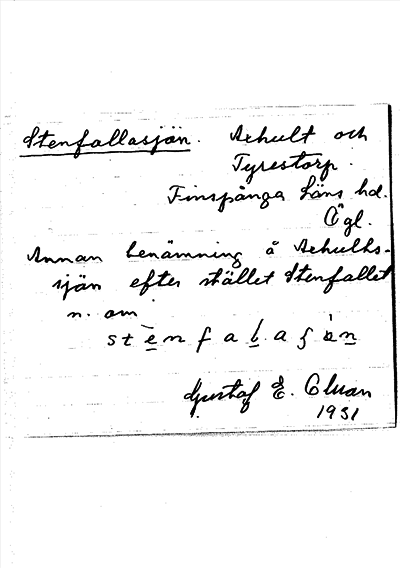 Stenfallasjön. Axhult och
Tyrestorp.
Finspånga läns hd.
Ögl.
Annan benämning å Axhults-
sjön efter stället Stenfallet
n. om
Gustaf E.
1931